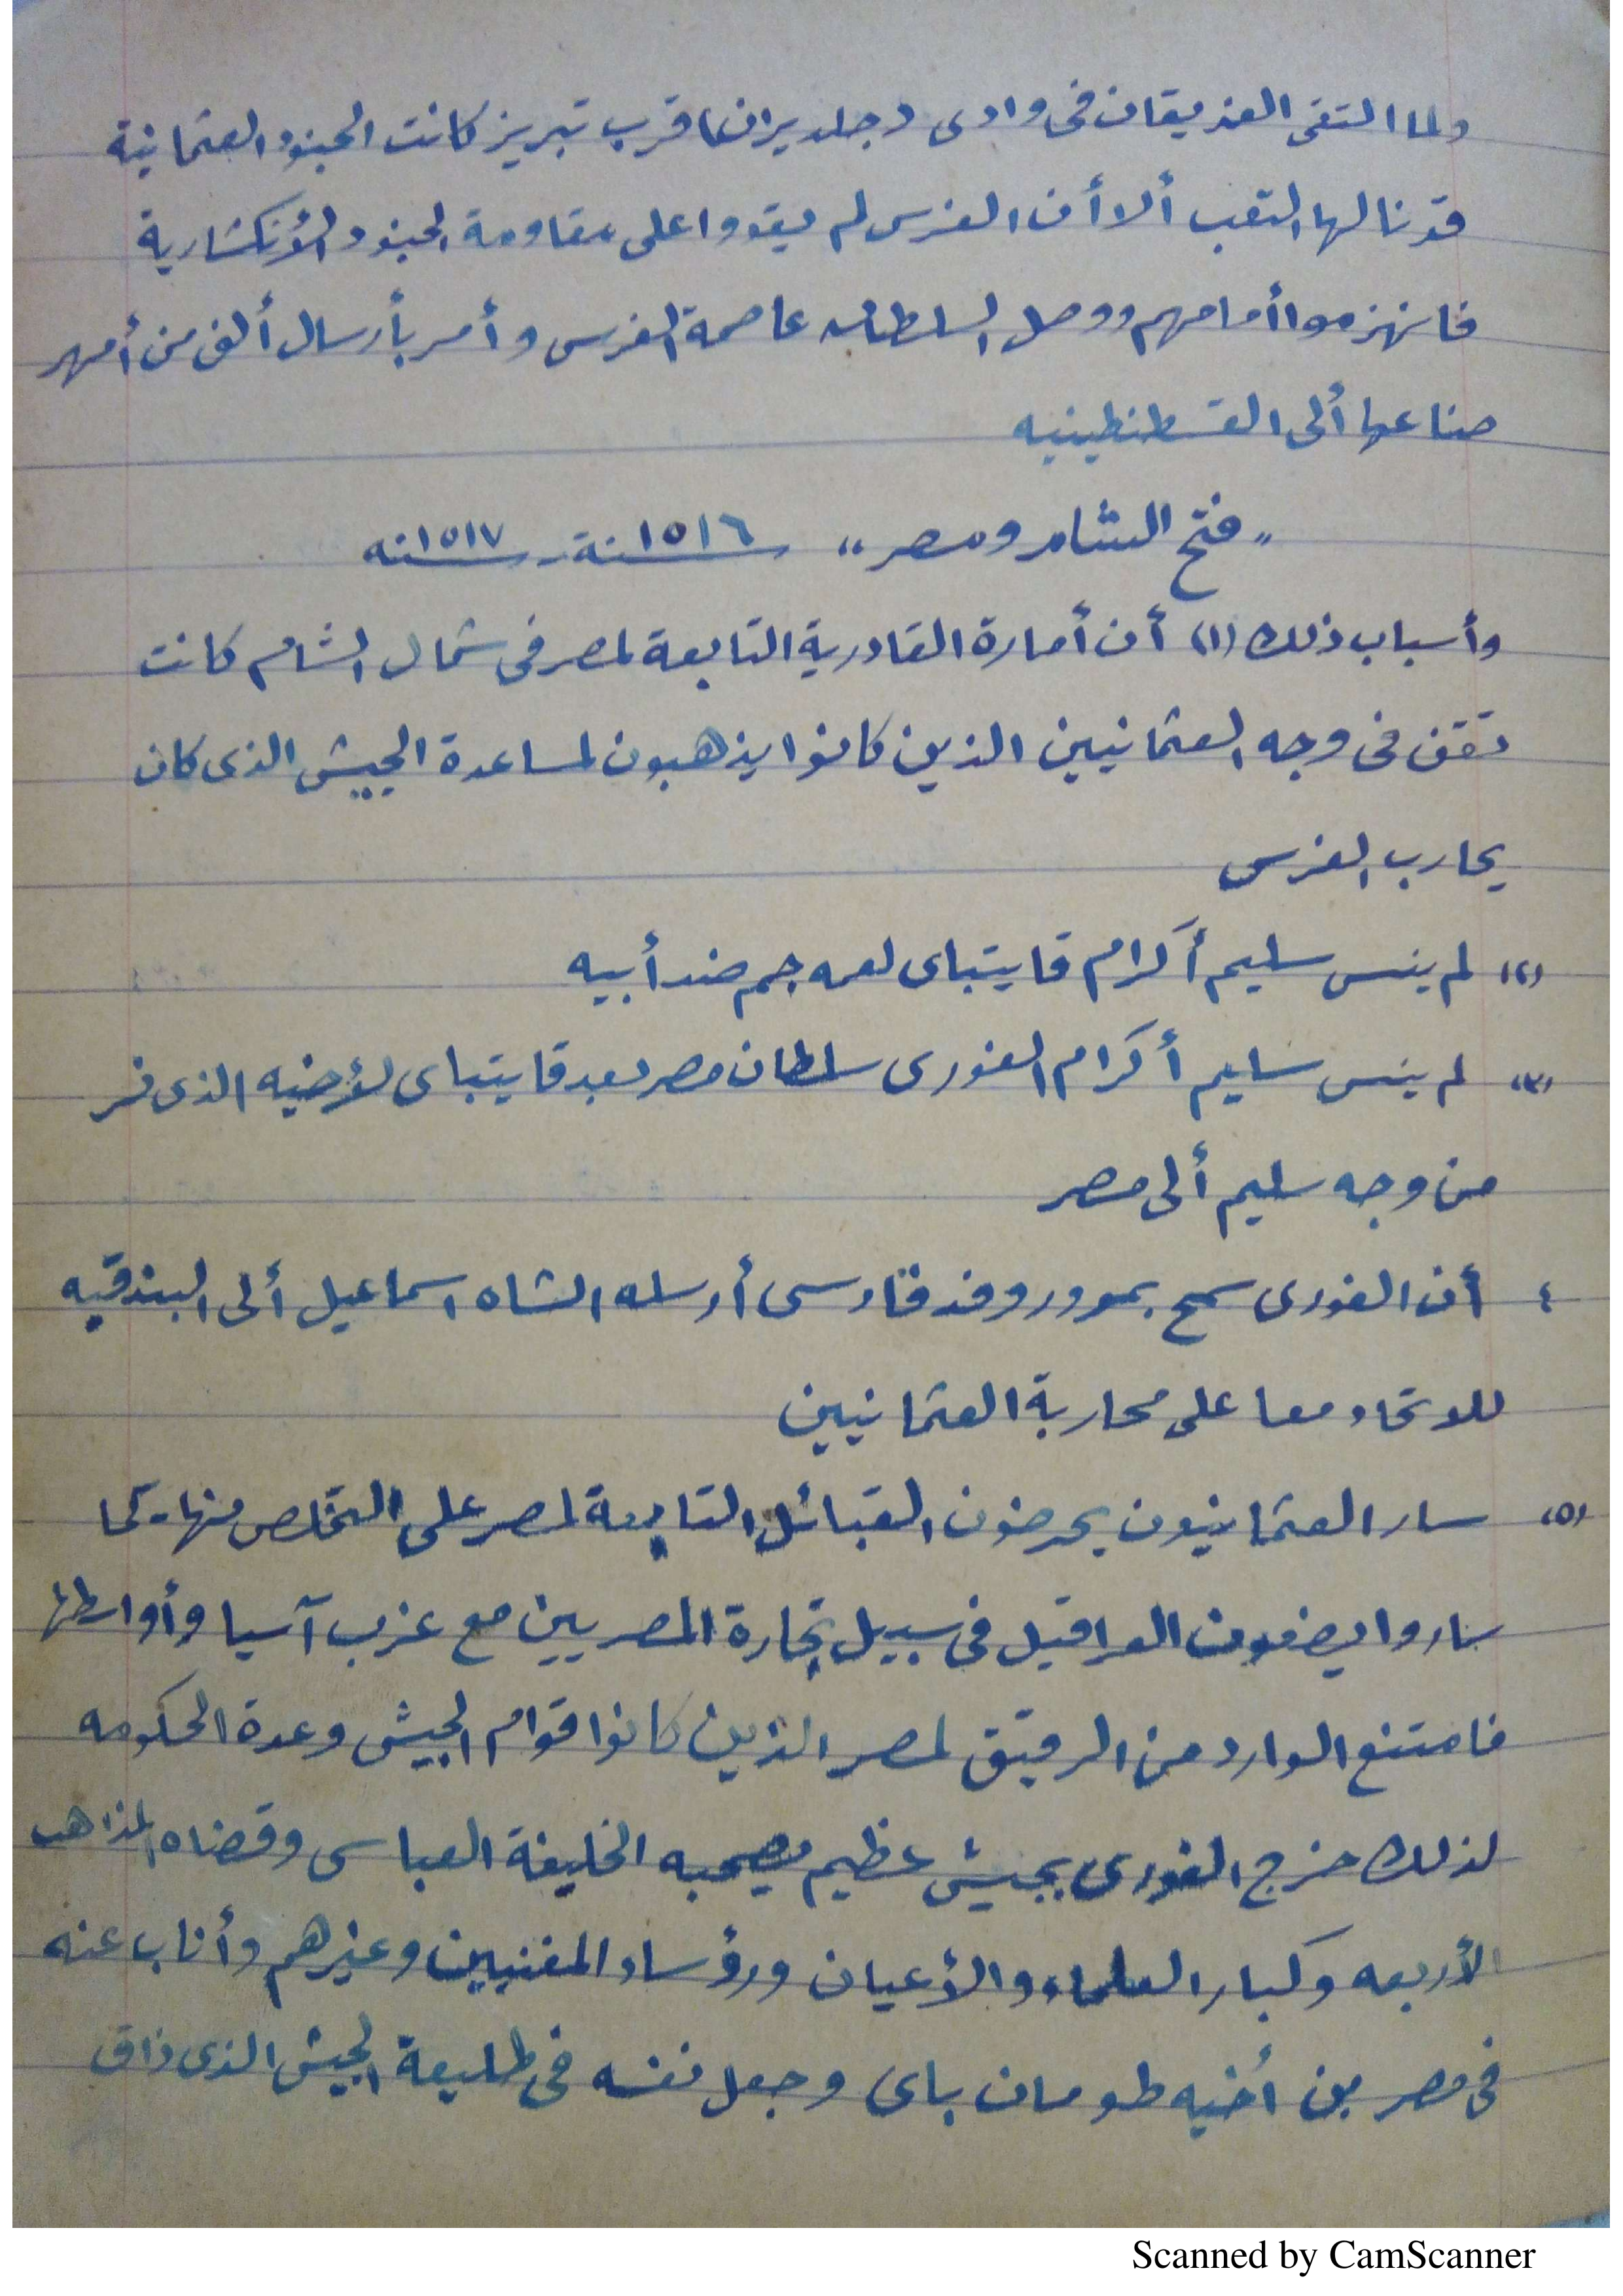 ولما التقى الفريقان فى وادى « جلديران » قرب تبريز كانت الجنود العثمانية
قد نالها التعب ألا أن الفرس لم يقووا على مقاومة الجنود الأنكشارية
فانهزموا أمامهم ووصل السلطان عاصمة الفرس وأمر بأرسال ألف من أمهر
صناعها ألى القسطنطينيه
" فتح الشام ومصر " سنة ١٥١٦ - سنه ١٥١٧
وأسباب ذلك (١) أن أمارة القادرية التابعة لمصر فى شمال الشام كانت
تقف فى وجه العثمانيين الذين كانوا يذهبون لمساعدة الجيش الذى كان
يحارب الفرس
(٢) لم ينس سليم أكرام قايتباى لعمه جم ضد أبيه
(٣) لم ينس سليم أكرام الغورى سلطان مصر بعد قايتباى لأخيه الذى فر
من وجه سليم ألى مصر
٤ أن الغورى سمح بمرور وفد فارسى أرسله الشاه اسماعيل ألى البندقيه
للاتحاد معا على محاربة العثمانيين
(٥) سار العثمانيون يحرضون القبائل التابعة لمصر على التخلص منها كما
ساروا يضعون العراقيل فى سبيل تجارة المصريين مع غرب آسيا وأواسطها
فامتنع الوارد من الرقيق لمصر الذين كانوا قوام الجيش وعدة الحكومه
لذلك خرج الغورى بجيش عظيم يصحبه الخليفة العباسى وقضاه المذاهب
الأربعه وكبار العلماء والأعيان ورؤساء المغنيين وغيرهم وأناب عنه
فى مصر بن أخيه طومان باى وجعل نفسه فى طليعة الجيش الذى ذاق
Scanned by CamScanner